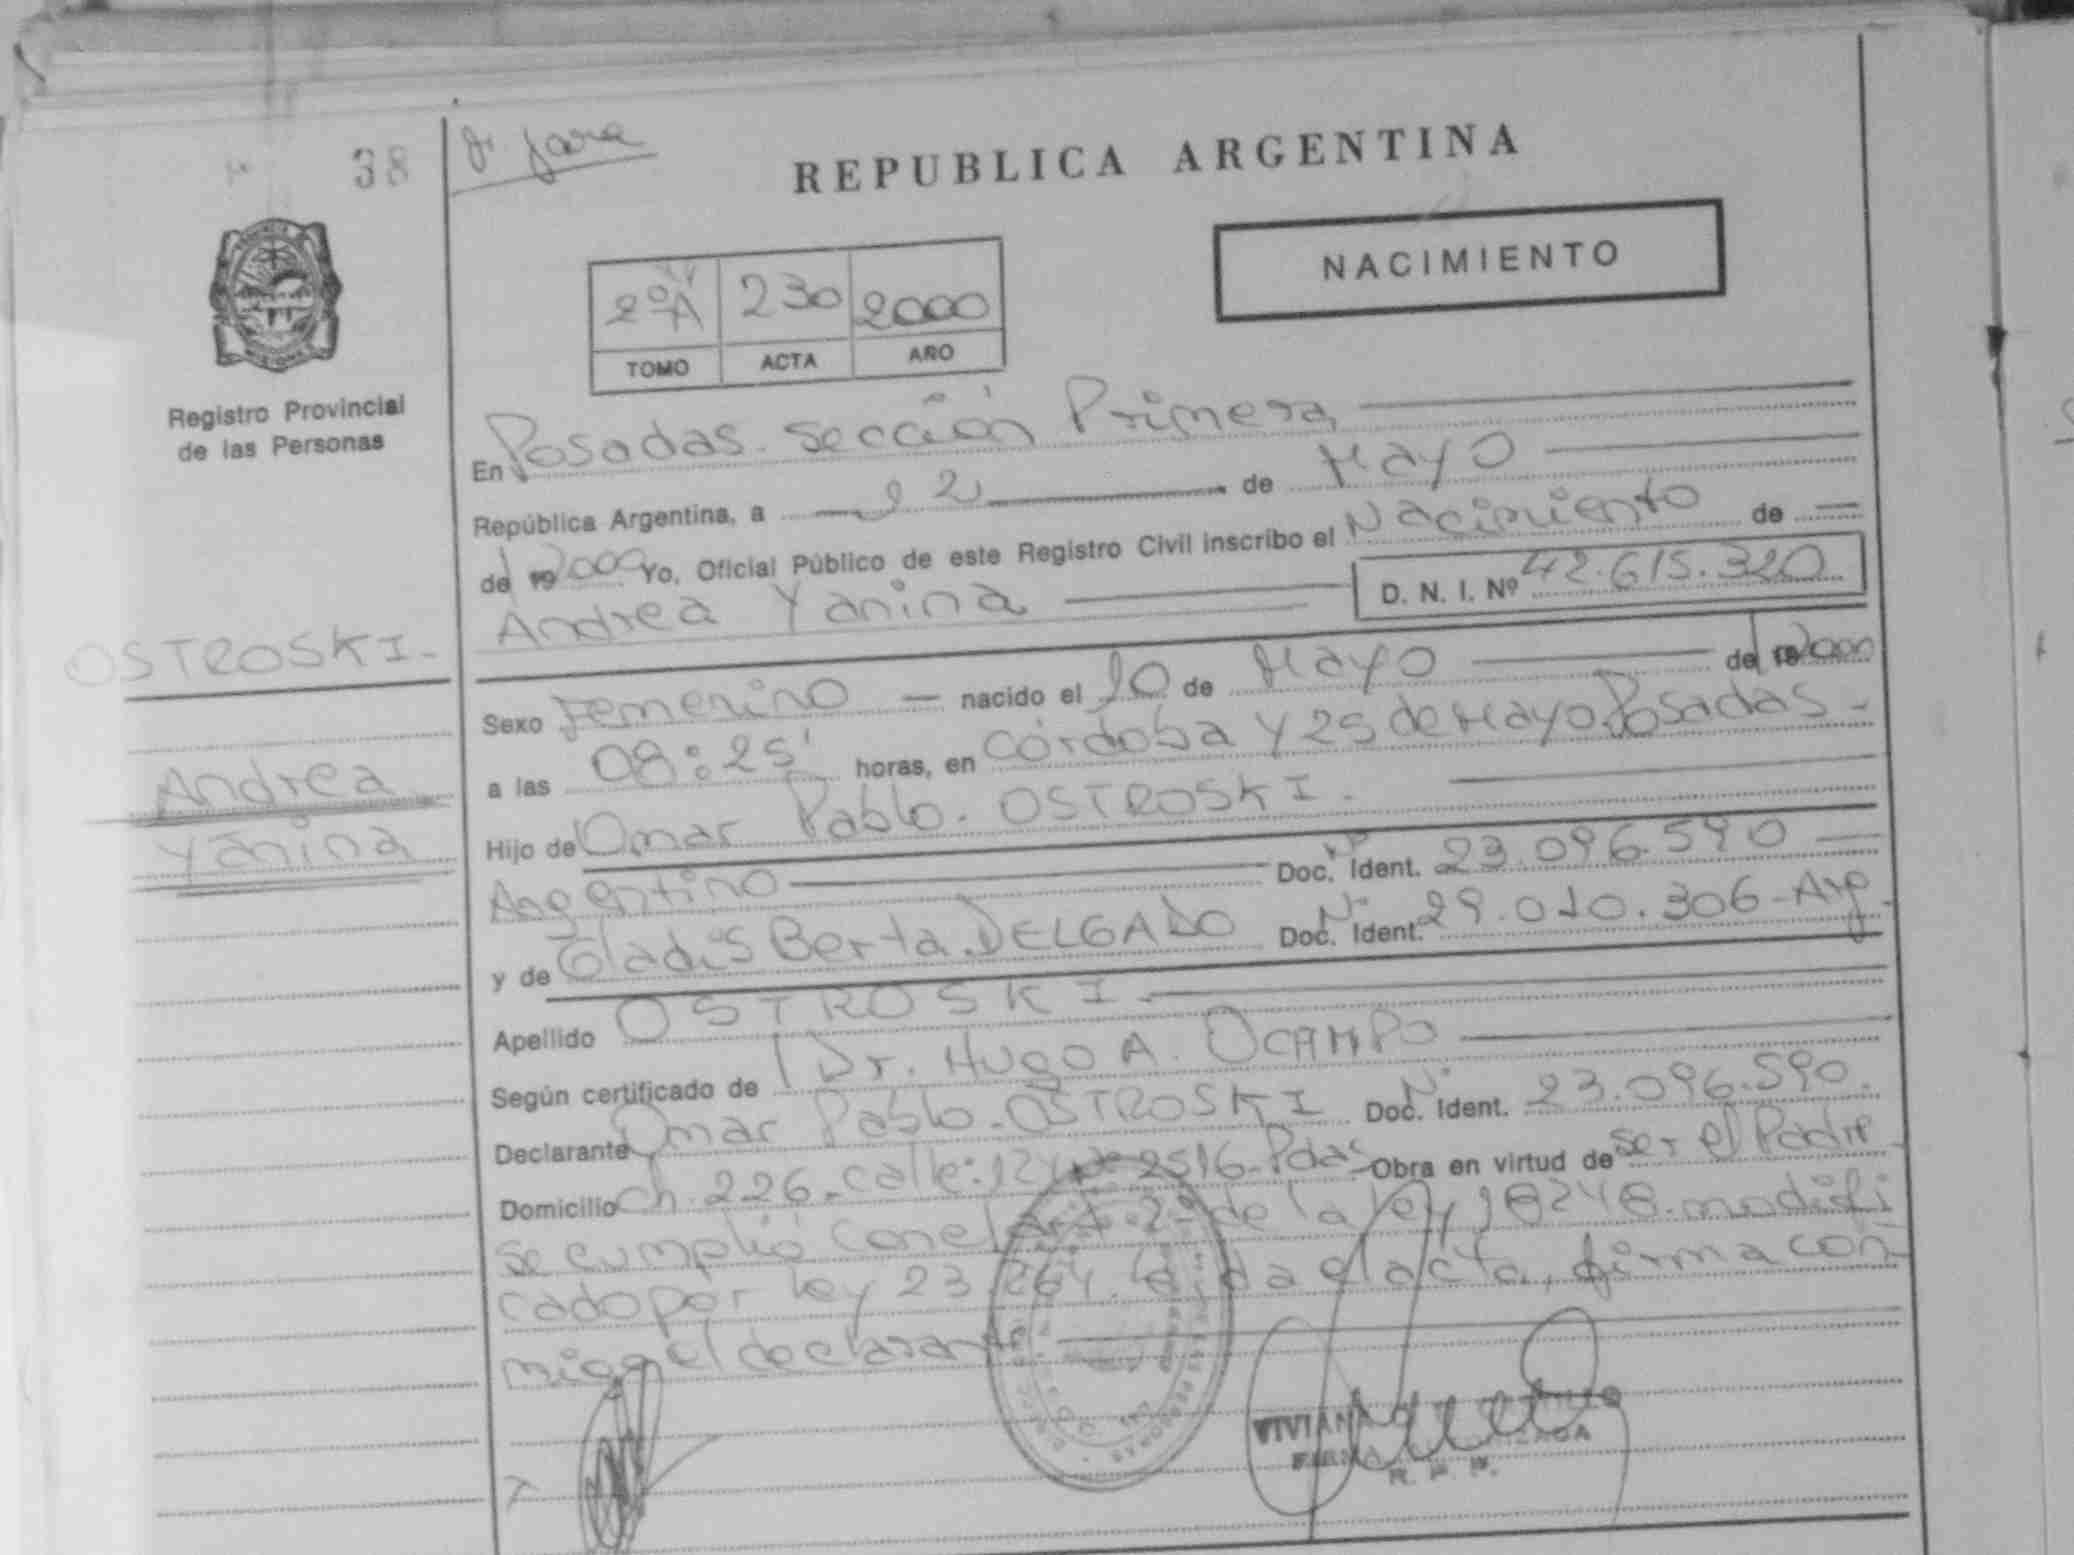 38
REPUBLICA ARGENTINA
NACIMIENTO
2ºA 230 2000
TOMO ACTA AÑO
Registro Provincial
de las Personas
En Posadas. sección Primera
República Argentina, a 12 de Mayo
del 2000 Yo, Oficial Público de este Registro Civil inscribo el Nacimiento de
Andrea Yanina D. N. I. Nº 42.615.320
OSTROSKI.
Andrea
Yanina
Sexo Femenino nacido el 10 de Mayo del 2000
a las 08:25' horas, en Córdoba y 25 de Mayo Posadas
Hijo de Omar Pablo. OSTROSKI.
Argentino Doc. Ident. Nº 23.096.590
y de Gladis Berta. DELGADO Doc. Ident. Nº 29.010.306 - Arg.
Apellido OSTROSKI.
Según certificado de Dr. Hugo A. OCAMPO
Declarante Omar Pablo. OSTROSKI Doc. Ident. Nº 23.096.590.
Domicilio Ch. 226. calle: 2516. Pdas Obra en virtud de ser el Padre
se cumplió con el Art. 2º de la ley 18248. modifi
cado por ley 23.264. Leída el acta, firma con-
migo el declarante
VIVIANA
R. P. P.